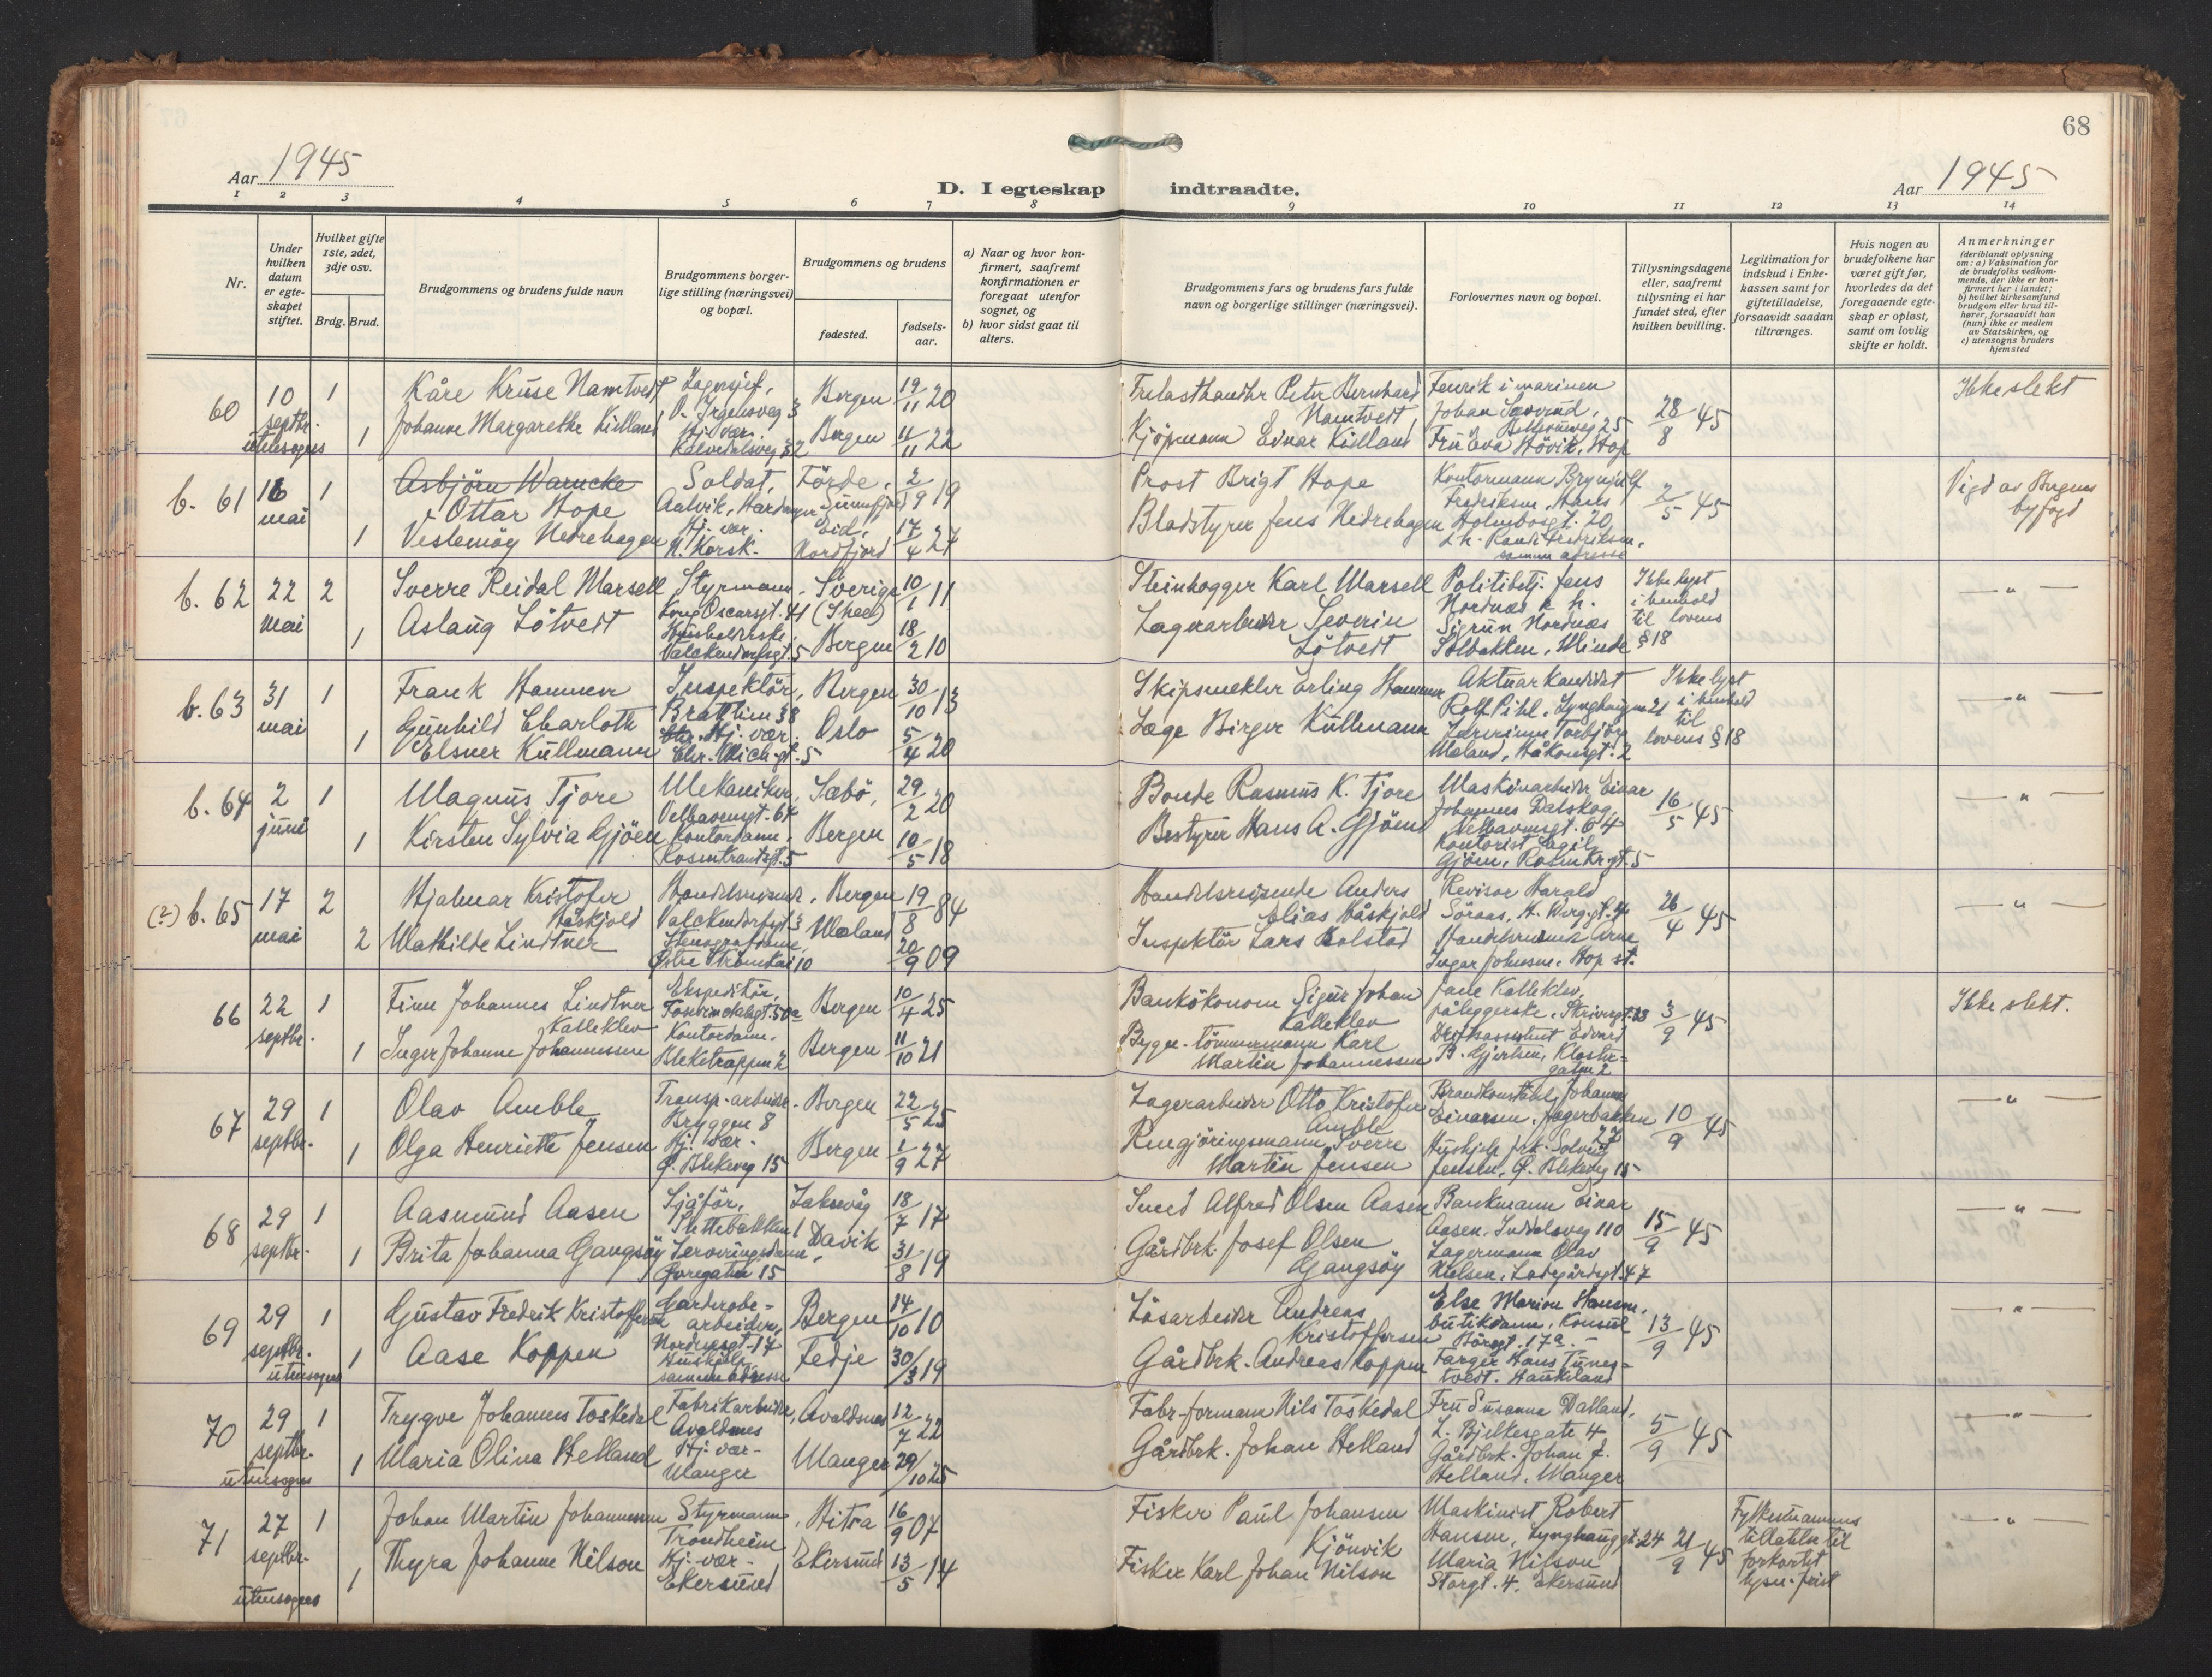 68
Aar 1945
D. I egteskap indtraadte.
Aar 1945
1 2 3 4 5 6 7 8 9 10 11 12 13 14
Nr.
Under hvilken datum er egteskapet stiftet.
Hvilket gifte 1ste, 2det, 3dje osv.
Brdg. Brud.
Brudgommens og brudens fulde navn
Brudgommens borgerlige stilling (næringsvei) og bopæl.
Brudgommens og brudens
fødested.
fødselsaar.
a) Naar og hvor konfirmert, saafremt konfirmationen er foregaat utenfor sognet, og
b) hvor sidst gaat til alters.
Brudgommens fars og brudens fars fulde navn og borgerlige stillinger (næringsvei).
Forlovernes navn og bopæl.
Tillysningsdagene eller, saafremt tillysning ei har fundet sted, efter hvilken bevilling.
Legitimation for indskud i Enkekassen samt for giftetilladelse, forsaavidt saadan tiltrænges.
Hvis nogen av brudefolkene har været gift før, hvorledes da det foregaaende egteskap er opløst, samt om lovlig skifte er holdt.
Anmerkninger (deriblandt oplysning om: a) Vaksination for de brudefolks vedkommende, der ikke er konfirmert her i landet; b) hvilket kirkesamfund brudgom eller brud tilhører, forsaavidt han (hun) ikke er medlem av Statskirken, og c) utensogns bruders hjemsted
60 10 septbr. utensogns 1 Kåre Kruse Namtvedt Lagersjef, O. Irgensveg 3 Bergen 19/11 20 Trelasthandler Peter Bernhard Namtvedt Fenrik i marinen Johan Sæverud, 28/8 45 Ikke slekt
1 Johanne Margarethe Kielland Hj. vær. Kalvedalsveg 32 Bergen 11/11 22 Kjöpmann Einar Kielland Fru Eva Hövik, Hop
b. 61 16 mai 1 Asbjörn Warncke Ottar Hope Soldat, Aalvik, Hardanger Förde, Sunnfjord 2/9 19 Prost Brigt Hope Kontormann Brynjulf Fredriksen, Hans Holmboesgt. 20 2/5 45 Vigd av Bergens byfogd
1 Veslemöy Nedrehagen Hj. vær. N. Korsk. Eid, Nordfjord 17/4 27 Bladstyrer Jens Nedrehagen d. h. Randi Fredriksen, samme adresse
b. 62 22 mai 2 Sverre Reidal Marsell Styrmann, Kong Oscarsgt. 41 Sverige (Skee) 10/1 11 Steinhogger Karl Marsell Politibetj. Jens Nordnæs d. h. Ikke lyst i henhold til lovens § 18 — " —
1 Aslaug Lötveit Husholderske, Valckendorfsgt. 5 Bergen 18/2 10 Lagerarbeider Severin Lötveit Sigrun Nordnæs Solbakken, Minde
b. 63 31 mai 1 Frank Hammer Inspektör, Brattlien 38 Bergen 30/10 13 Skipsmekler Erling Hammer Aktuarkandidat Rolf Pihl, Lynghaugen 21 Ikke lyst i henhold til lovens § 18 — " —
1 Gunhild Charloth Elsner Kullmann Hj. vær. Chr. Mich. gt. 5 Oslo 5/4 20 Læge Birger Kullmann Lærerinne Torbjörg Mæland, Håkonsgt. 2
b. 64 2 juni 1 Magnus Tjore Mekaniker, Velhavensgt. 64 Sæbö, 29/2 20 Bonde Rasmus K. Tjore Maskinarbeider Einar Johannes Dalskog, Velhavensgt. 64 16/5 45 — " —
1 Kirsten Sylvia Gjöen Kontordame, Rosenkrantzgt. 5 Bergen 10/5 18 Bestyrer Hans A. Gjöen Kontorist Egil Gjöen, Rosenkr. gt. 5
(?) b. 65 17 mai 2 Hjalmar Kristofer Håskjold Handelsreisende, Valckendorfsgt 3 Bergen 19/8 84 Handelsreisende Anders Elias Håskjold Revisor Harald Söraas, H. Wergsgt. 4 26/4 45 — " —
2 Mathilde Lindtner Stenografdame, Östre Strömkai 10 Mæland 20/9 09 Inspektör Lars Kolstad Handelsreisende Arne Ingar Johnsen, Hop st.
66 22 septbr. 1 Finn Johannes Lindtner Kalleklev Ekspeditör, Bergen 10/4 25 Bankökonom Sigur Johan Kalleklev Jane Kalleklev, påleggerske, Skivebgt. 23 3/9 45 Ikke slekt.
1 Inger Johanne Johannessen Kontordame, Bleketrappen 2 Bergen 11/10 21 Bygn. tömmermann Karl Martin Johannessen Driftsassistent Edvard B. Gjertsen, Klostergaten 2
67 29 septbr. 1 Olav Amble Transp. arbeider, Bryggen 8 Bergen 22/5 25 Lagerarbeider Otto Kristofer Amble Brandkonstabel Johannes Einarsen, Jægerbakken 27 10/9 45 — " —
1 Olga Henriette Jensen Hj. vær. Ö. Blekeveg 15 Bergen 1/9 27 Rengjöringsmann Sverre Martin Jensen Hushjelp frk. Solveig Jensen, Ö. Blekeveg 15
68 29 septbr. 1 Aasmund Aasen Sjåför, Laksevåg 18/7 17 Smed Alfred Olsen Aasen Bankmann Einar Aasen, Indalsveg 110 15/9 45 — " —
1 Brita Johanna Gangsöy Serveringsdame, Davik 31/8 19 Gårdbrk. Josef Olsen Gangsöy Lagermann Olav Nielsen, Ladegårdsgt. 47
69 29 septbr. utensogns 1 Gustav Fredrik Kristoffersen Garderobearbeider, Nordnesgt. 17 Bergen 14/10 10 Lösarbeider Andreas Kristoffersen Else Marion Hansen, butikdame, Konsul Börsgt. 17a. 13/9 45 — " —
1 Aase Koppen Hushjelp, samme adresse Fedje 30/3 19 Gårdbrk. Andreas Koppen Farger Hans Tunestvedt. Haukeland
70 29 septbr. utensogns 1 Trygve Johannes Toskedal Fabrikarbeider, Avaldsnes Avaldsnes 12/7 22 Fabr. formann Nils Toskedal Fru Susanna Dalland, L. Bjelkesgate 4 5/9 45 — " —
1 Maria Olina Helland Hj. vær. Manger Manger 29/10 25 Gårdbrk. Johan Helland Gårdbrk. Johan J. Helland, Manger
71 27 septbr. utensogns 1 Johan Martin Johannessen Styrmann, Trondheim Hitra 16/9 07 Fisker Paul Johansen Kjönvik Maskinist Robert Hansen, Lynghauggt. 24 21/9 45 Fylkesmannens tillatelse til forkortet lysn. frist — " —
1 Thyra Johanne Nilson Hj. vær. Ekersund Ekersund 13/5 14 Fisker Karl Johan Nilson Maria Nilson Storgt. 4, Ekersund